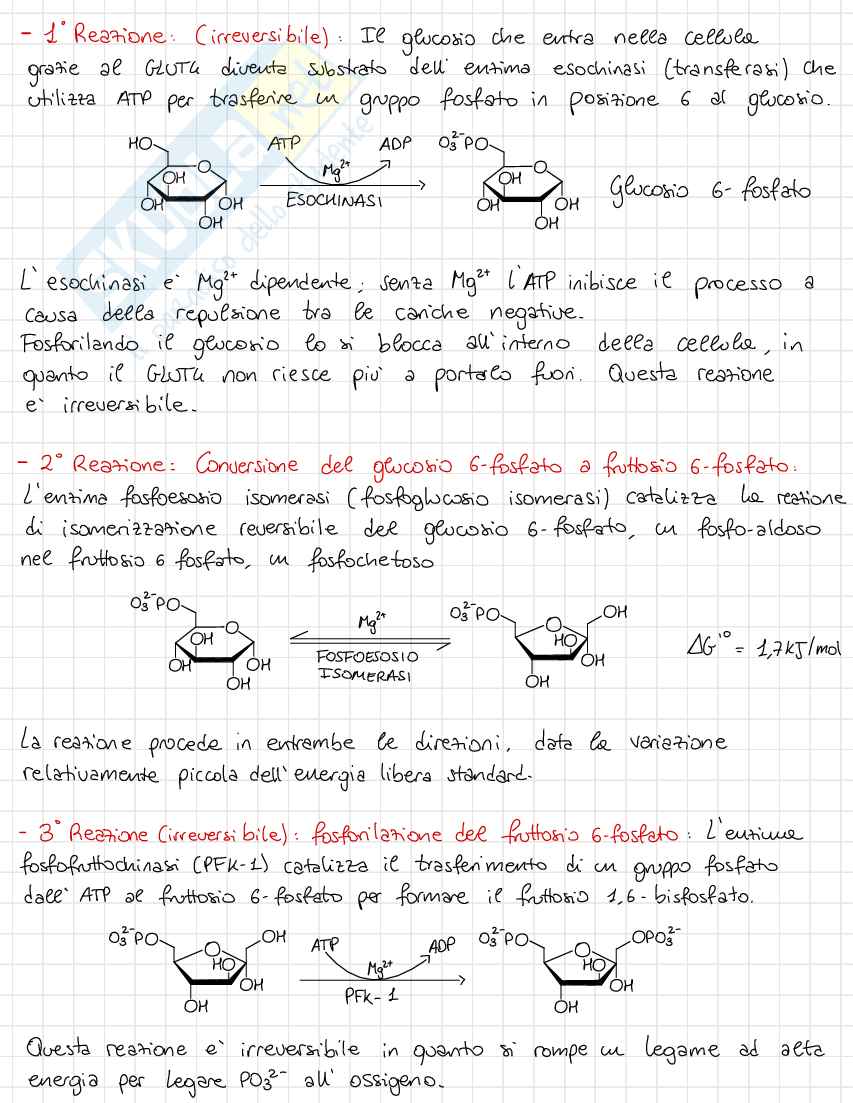 - 1° Reazione: (irreversibile): Il glucosio che entra nella cellula
grazie al GLUT4 diventa substrato dell'enzima esochinasi (transferasi) che
utilizza ATP per trasferire un gruppo fosfato in posizione 6 al glucosio.
HO ATP ADP O₃²⁻PO
O OH Mg²⁺ O OH Glucosio 6-fosfato
OH OH ESOCHINASI OH OH
OH OH
L'esochinasi è Mg²⁺ dipendente; senza Mg²⁺ l'ATP inibisce il processo a
causa della repulsione tra le cariche negative.
Fosforilando il glucosio lo si blocca all'interno della cellula, in
quanto il GLUT4 non riesce più a portarlo fuori. Questa reazione
è irreversibile.
- 2° Reazione: Conversione del glucosio 6-fosfato a fruttosio 6-fosfato:
L'enzima fosfoesosio isomerasi (fosfoglucosio isomerasi) catalizza la reazione
di isomerizzazione reversibile del glucosio 6-fosfato, un fosfo-aldoso
nel fruttosio 6 fosfato, un fosfochetoso
O₃²⁻PO O₃²⁻PO OH
O OH Mg²⁺ O HO ΔG'° = 1,7kJ/mol
OH OH FOSFOESOSIO OH
OH ISOMERASI OH
La reazione procede in entrambe le direzioni, data la variazione
relativamente piccola dell'energia libera standard.
- 3° Reazione (irreversibile): fosforilazione del fruttosio 6-fosfato: L'enzima
fosfofruttochinasi (PFK-1) catalizza il trasferimento di un gruppo fosfato
dall'ATP al fruttosio 6-fosfato per formare il fruttosio 1,6-bisfosfato.
O₃²⁻PO OH ATP ADP O₃²⁻PO OPO₃²⁻
O HO Mg²⁺ O HO
OH PFK-1 OH
OH OH
Questa reazione è irreversibile in quanto si rompe un legame ad alta
energia per legare PO₃²⁻ all'ossigeno.